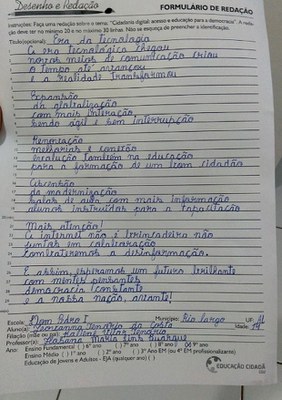 Desenho e Redação
FORMULÁRIO DE REDAÇÃO
Instruções: Faça uma redação sobre o tema: "Cidadania digital: acesso e educação para a democracia". A redação deve ter no mínimo 20 e no máximo 30 linhas. Não se esqueça de preencher a identificação.
Título(opcional): Era da tecnologia
A era tecnológica chegou
novos meios de comunicação criou
o tempo até avançou
e a realidade transformou
Expansão
da globalização
com mais interação,
sendo ágil e sem interrupção
melhorias e conexão
evolução também na educação
para a formação de um bom cidadão
da modernização
salas de aula com mais informação
alunos instruídos para a capacitação
Mais atenção!
A internet não é brincadeira não
juntos em colaboração
combateremos a desinformação.
E assim, esperamos um futuro brilhante
com mentes pensantes
democracia constante
e a nossa nação, avante!
Escola: Dom Pedro I Município: Rio Largo UF: AL
Tenório da Costa Idade: 14
Filiação (mãe ou pai): Tenório
Professor(a): Maria Lins Buarque
Ano: Ensino Fundamental ( ) 6º ano ( ) 7º ano ( ) 8º ano 9º ano
Ensino Médio ( ) 1º ano ( ) 2º ano ( ) 3º Ano EM (ou 4º EM profissionalizante)
Educação de Jovens e Adultos - EJA (qualquer ano) ( )
EDUCAÇÃO CIDADÃ